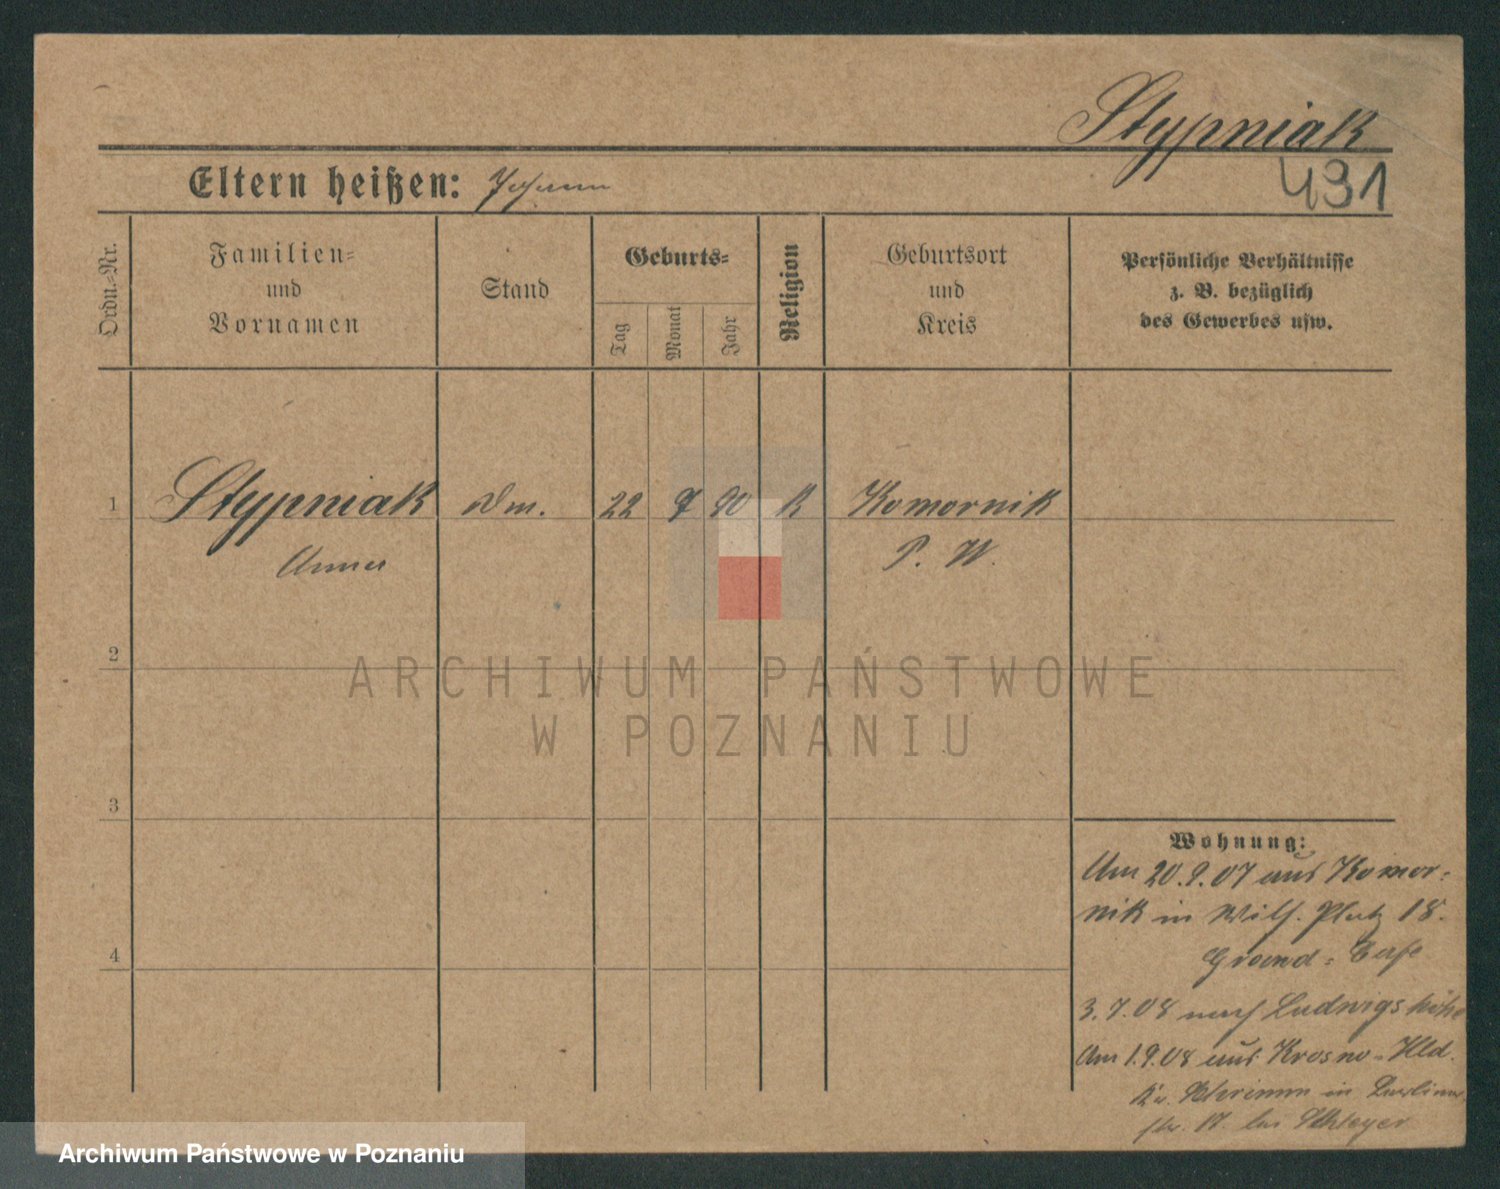 Stypniak
431
Eltern heißen: Johann
Ordn.-Nr.
Familien=
und
Vornamen
Stand
Geburts=
Tag
Monat
Jahr
Religion
Geburtsort
und
Kreis
Persönliche Verhältnisse
z. B. bezüglich
des Gewerbes usw.
1 Stypniak Dm. 22 7 90 K Komornik
Anna P. W.
2
3
4
Wohnung:
Am 20.9.07 aus Komor=
nik in Wilh. Platz 18.
Grand=Cafe
3.7.08 nach Ludwigshöhe
Am 1.9.08 aus Krosno-Hld.
Kr. Schrimm in Berliner
str. 17. bei Schleyer
ARCHIWUM PAŃSTWOWE
W POZNANIU
Archiwum Państwowe w Poznaniu